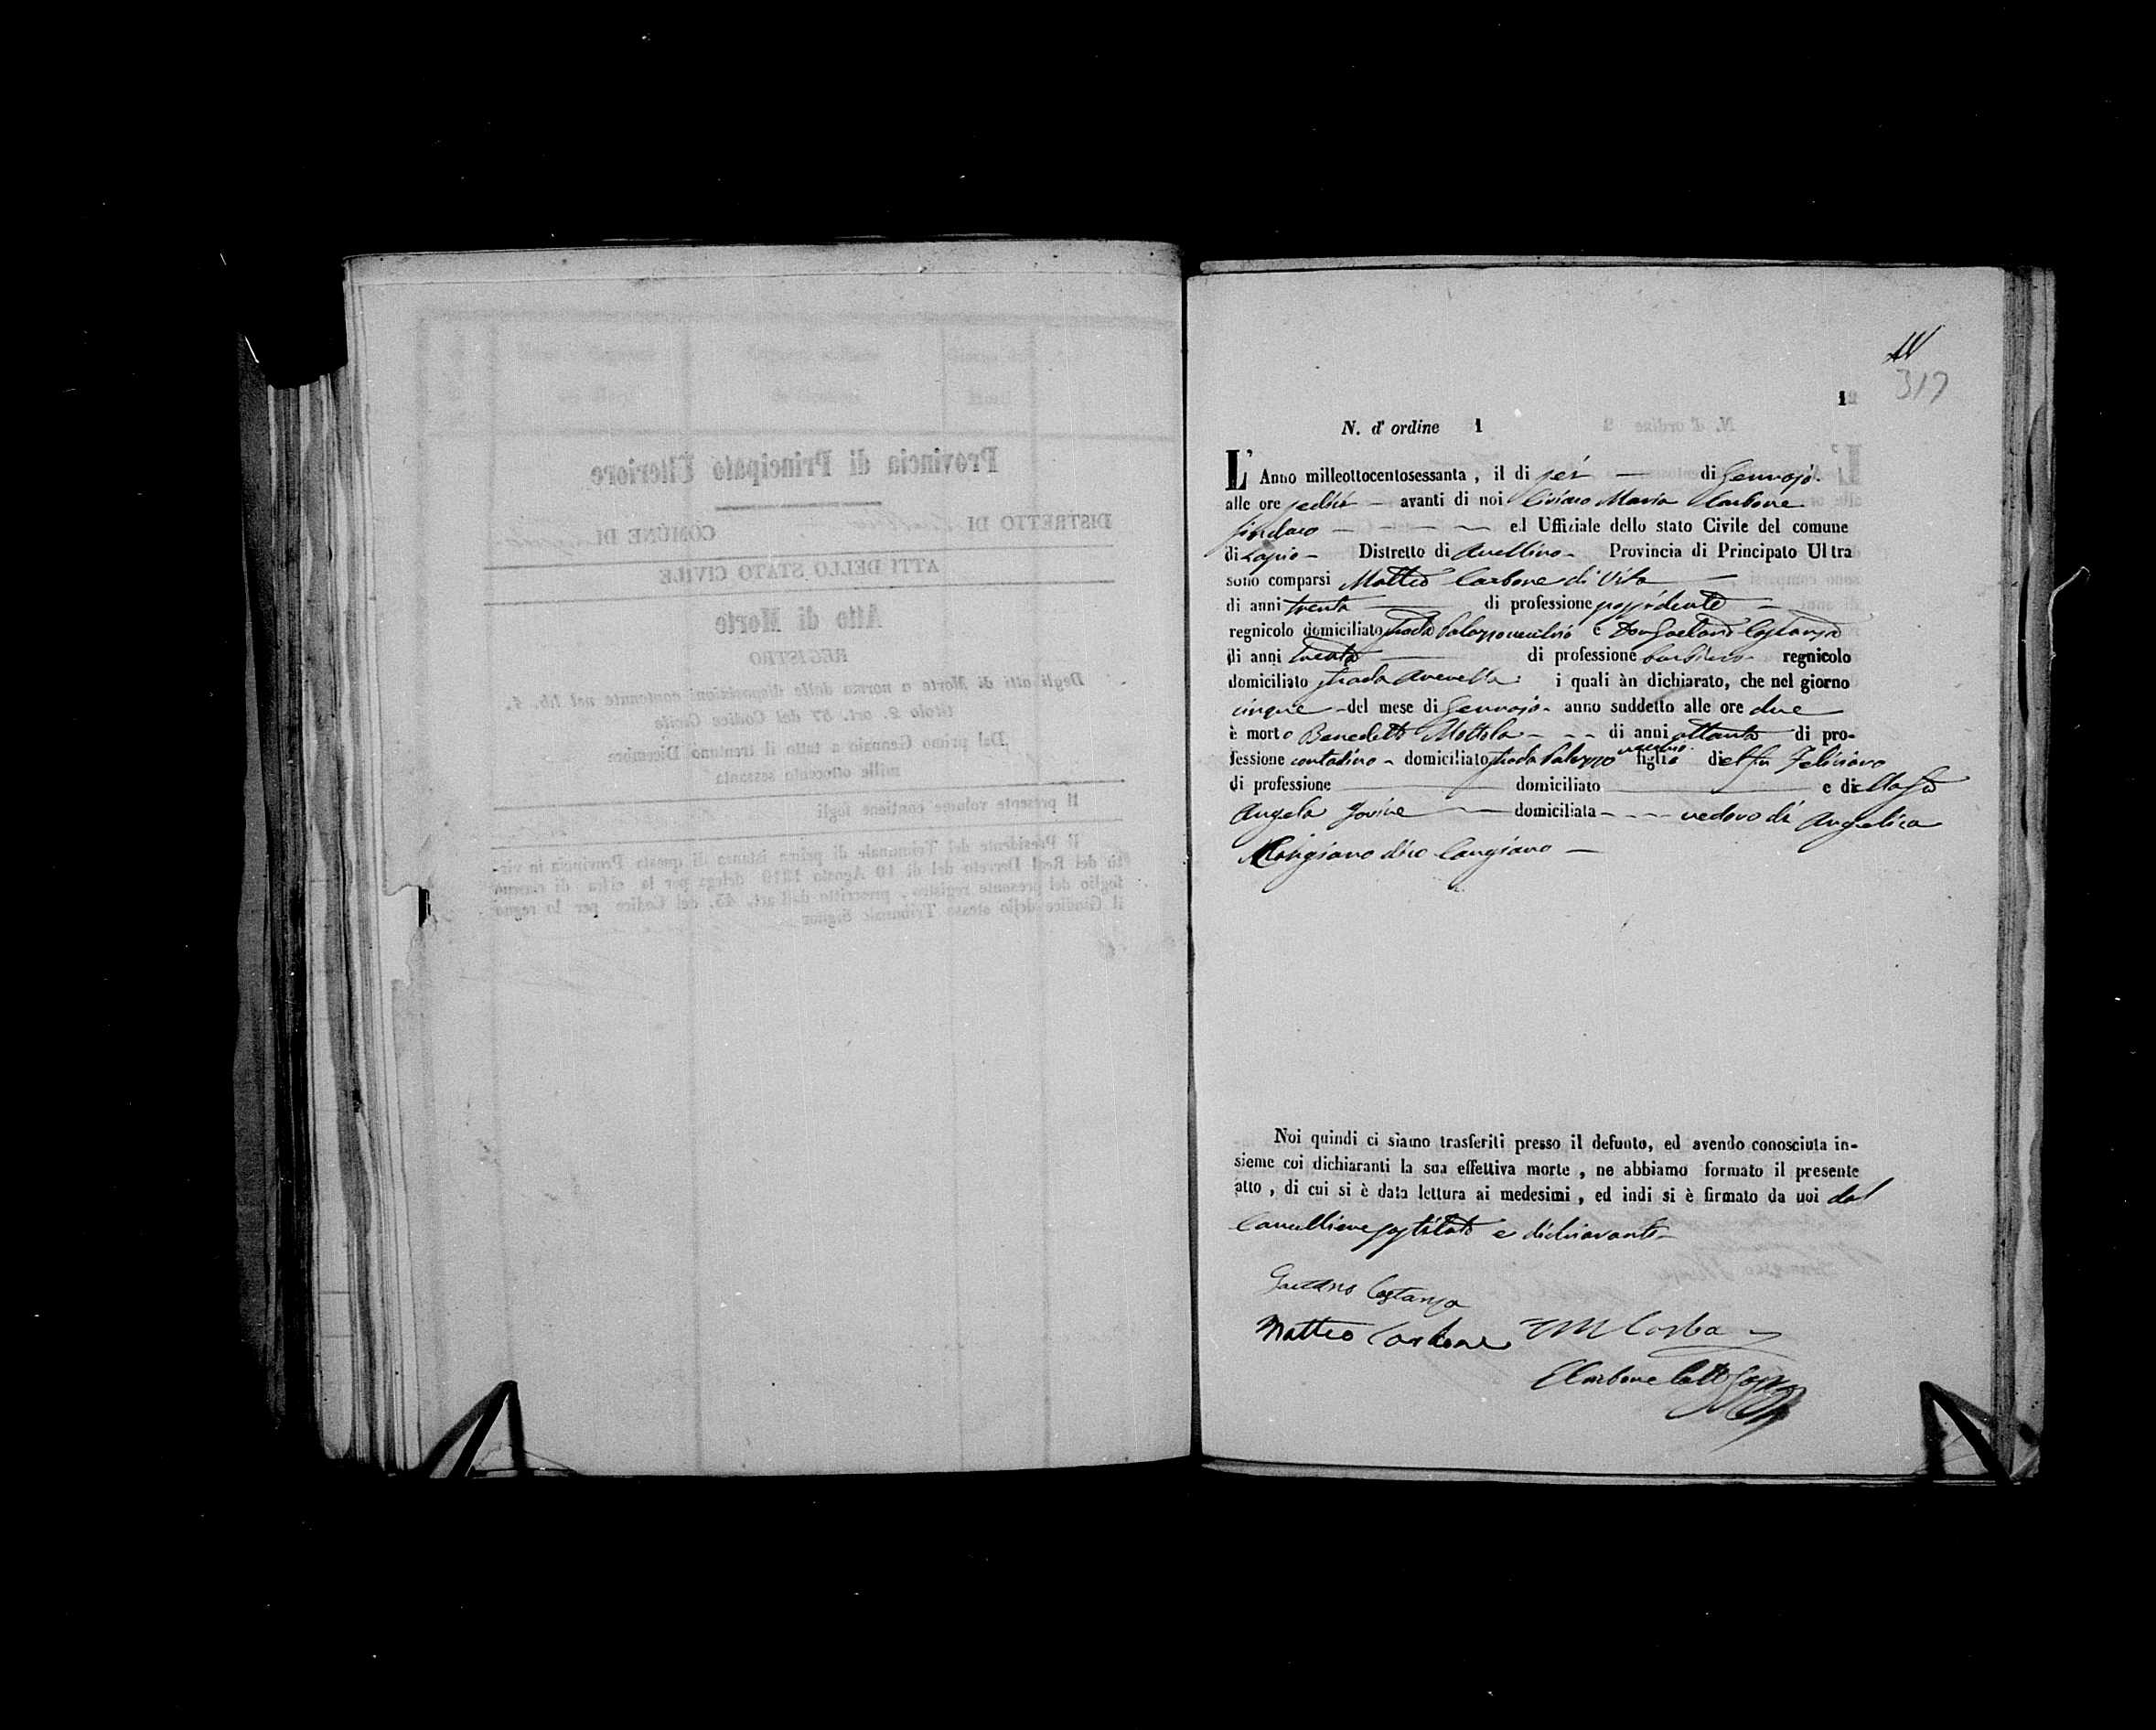 317
1
N. d' ordine 1
L' Anno milleottocentosessanta, il di sei di Gennajo
alle ore sedici avanti di noi Ciriaco Maria Carbone
Sindaco ed Uffiziale dello stato Civile del comune
di Lapio Distretto di Avellino Provincia di Principato Ultra
sono comparsi Matteo Carbone di Vito
di anni trenta di professione possidente
regnicolo domiciliato strada Palazzovecchio e Don Gaetano Costanza
di anni trenta di professione regnicolo
domiciliato strada i quali àn dichiarato, che nel giorno
cinque del mese di Gennajo anno suddetto alle ore due
è morto Benedetto Mottola di anni ottanta di pro-
fessione contadino domiciliato strada Palazzo vecchio figlio del fu Feliciano
di professione domiciliato e di
Angela Jovine domiciliata vedovo di Angelica
Cangiano
Noi quindi ci siamo trasferiti presso il defunto, ed avendo conosciuta in-
sieme coi dichiaranti la sua effettiva morte, ne abbiamo formato il presente
atto, di cui si è data lettura ai medesimi, ed indi si è firmato da noi dal
Cancelliere sostituto e dichiaranti
Gaetano Costanza
Matteo Carbone
Carbone
Provincia di Principato Ulteriore
DISTRETTO DI COMUNE DI
ATTI DELLO STATO CIVILE
Atto di Morte
REGISTRO
Degli atti di Morte a norma delle disposizioni contenute nel lib. 1.
titolo 2. art. 57 del Codice Civile
Dal primo Gennaio a tutto il trentuno Dicembre
mille ottocento sessanta
Il presente volume contiene fogli
Il Presidente del Tribunale di prima istanza di questa Provincia in vir-
tù del Real Decreto del di 10 Agosto 1819 delega per la cifra di ciascun
foglio del presente registro, prescritto dall'art. 43. del Codice per lo regno
il Giudice dello stesso Tribunale Signor